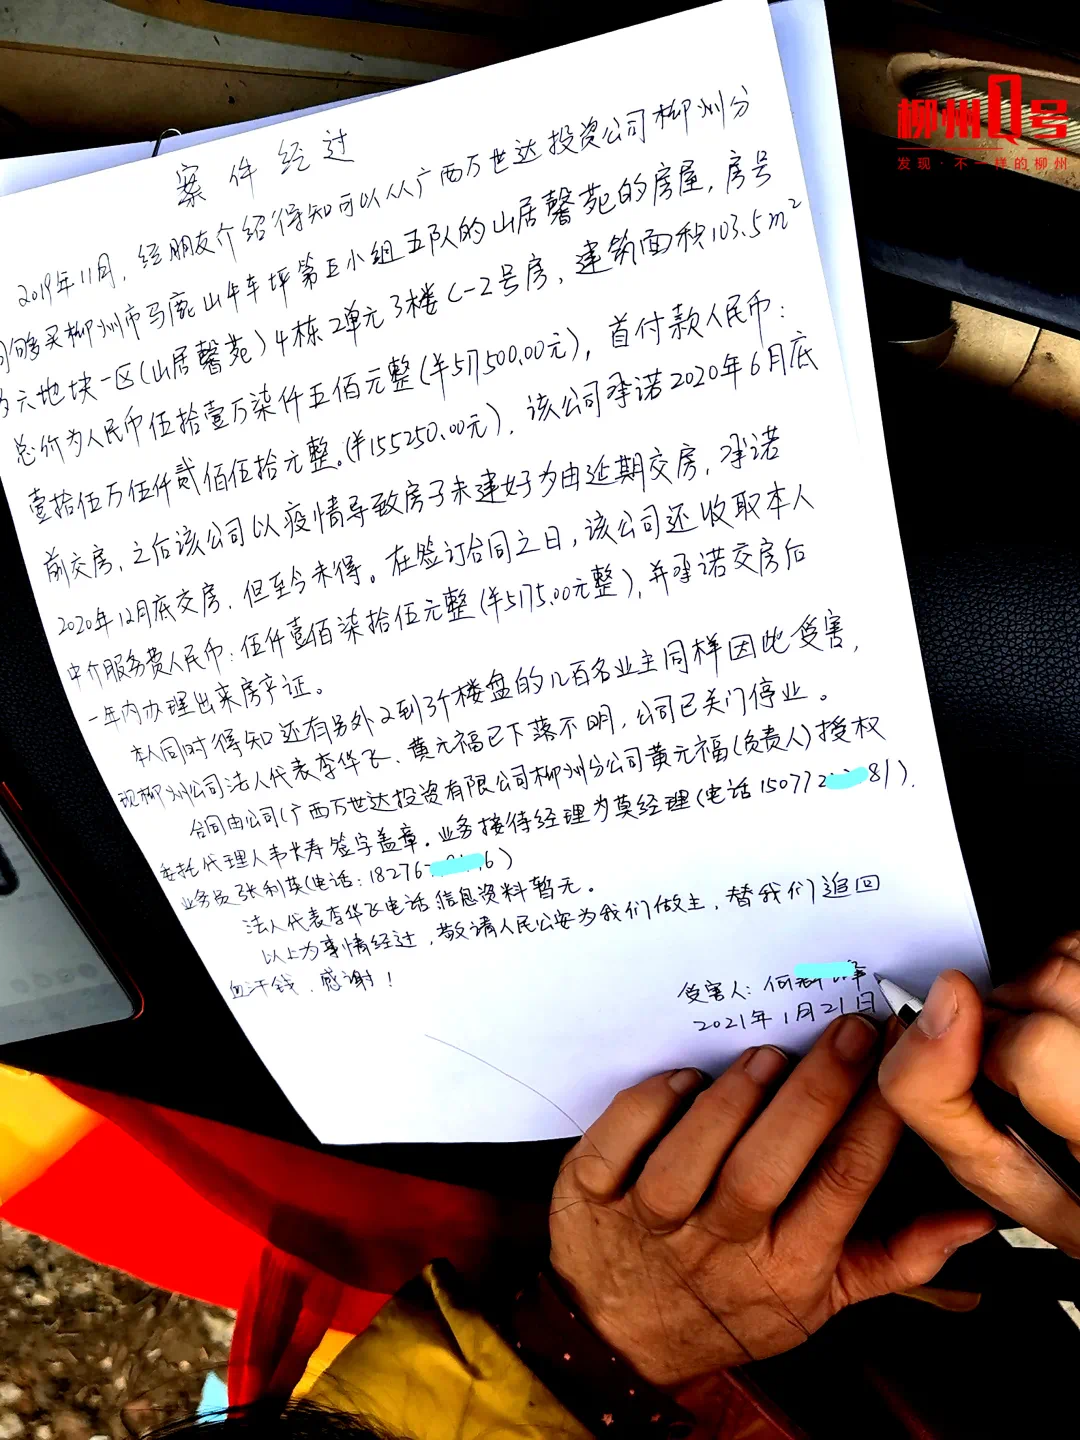 柳州1号
发现·不一样的柳州
案件经过
2019年11月,经朋友介绍得知可以从广西万世达投资公司柳州分
司够买柳州市马鹿山牛车坪第五小组五队的山居馨苑的房屋,房号
为六地块一区(山居馨苑)4栋2单元3楼C-2号房,建筑面积103.5m²
总价为人民币伍拾壹万柒仟五佰元整(¥517500.00元),首付款人民币:
壹拾伍万伍仟贰佰伍拾元整。(¥155250.00元),该公司承诺2020年6月底
前交房,之后该公司以疫情导致房子未建好为由延期交房,承诺
2020年12月底交房,但至今未得。在签订合同之日,该公司还收取本人
中介服务费人民币:伍仟壹佰柒拾伍元整(¥5175.00元整),并承诺交房后
一年内办理出来房产证。
本人同时得知还有另外2到3个楼盘的几百名业主同样因此受害,
现柳州公司法人代表李华飞、黄元福已下落不明,公司已关门停业。
合同由公司(广西万世达投资有限公司柳州分公司黄元福(负责人)授权
委托代理人韦长寿签字盖章。业务接待经理为莫经理(电话150772 81),
业务员张利英(电话:18276 6)
法人代表李华飞电话信息资料暂无。
以上为事情经过,敬请人民公安为我们做主,替我们追回
血汗钱、感谢!
受害人:何
2021年1月21日